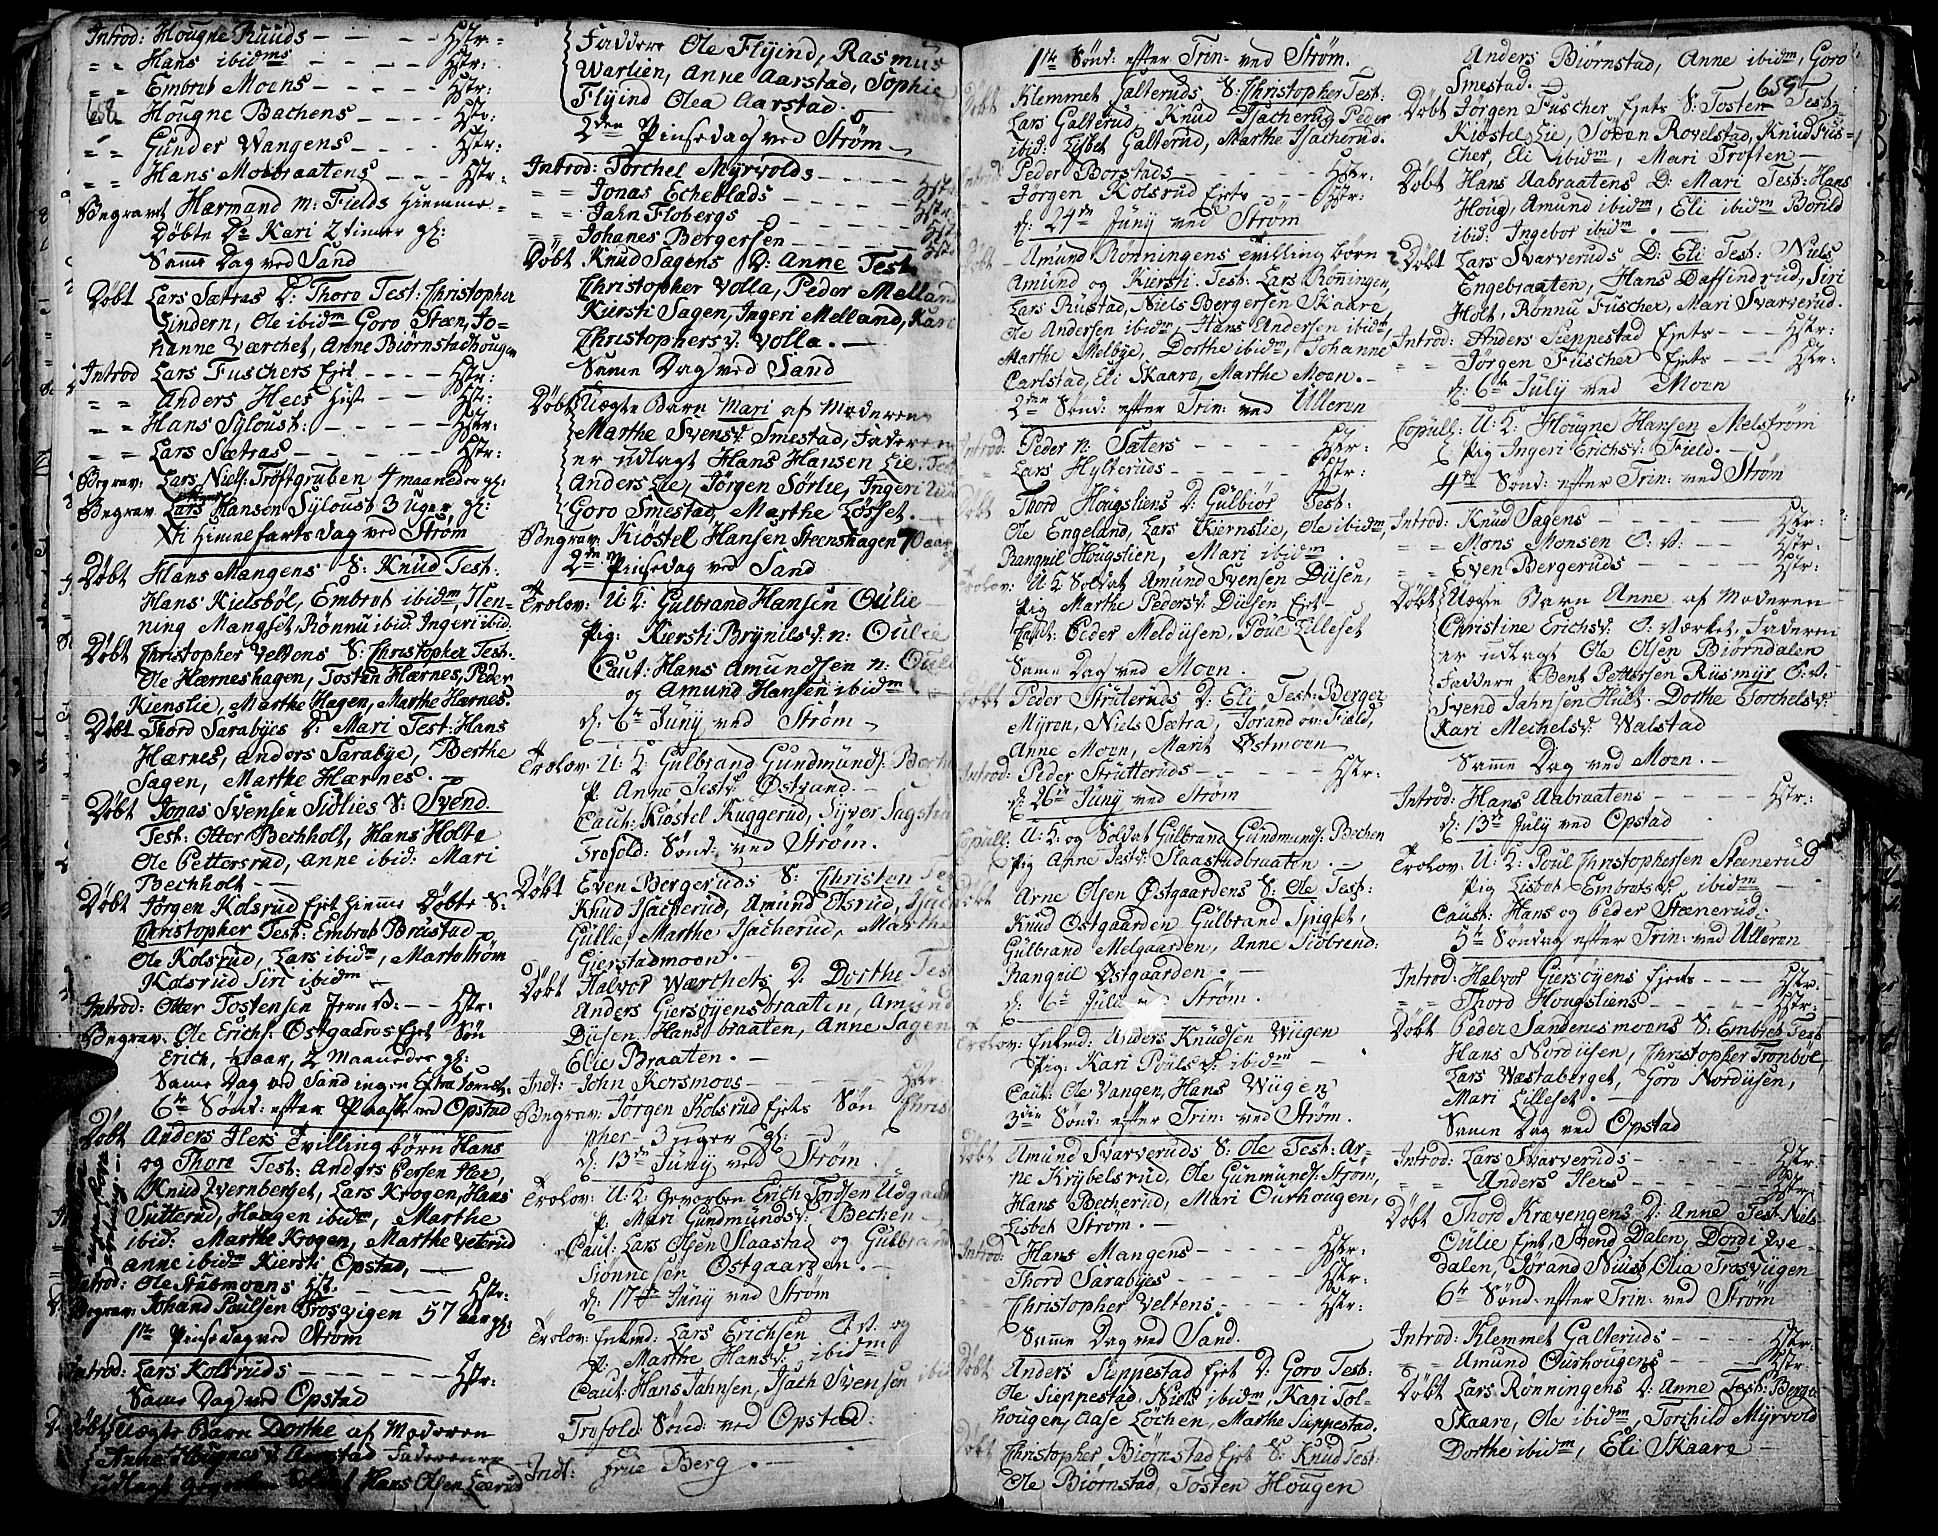 Introd: Hougne Ruuds - - - Hstr:
" " Hans ibidms - - - - Hstr:
" = Embret Moens - - - - - Hstr:
658 Hougne Bachens - - - - Hstr:
" " Gunder Wangens - - - - Hstr:
" " Hans Moebraatens - - - Hstr:
Begravt Harmand m: Fields Hiemme=
Døbte D: Kari 2 timer gl:
Samme Dag ved Sand
Døbt Lars Sætras D: Thoro Test: Christopher
Lindern, Ole ibidm Goro Steen, Jo=
hanne Værchet, Anne Biørnstadhougen
Introd Lars Fuschers Ejet - - - - Hstr:
" = Anders Hees Hust - - - Hstr:
" = Hans Syloust: - - - - - Hstr:
" = Lars Sætras - - - - - Hstr:
Begrav: Lars Niels: Tröftgruben 4 maaneder gl:
Begrav Lars Hansøn Syloust 3 uger gl:
Xti Himmelfarts dag ved Strøm
Døbt Hans Mangens S: Knud Test:
Hans Kielsbøl, Embret ibidm, Hen-
ning Mangset, Rønnu ibid: Ingeri ibid.
Døbt Christopher Veltens S: Christopher Test:
Ole Hærneshagen, Tosten Hærnes, Peder
Kienslie, Marthe Hagen, Marthe Hærnes.
Døbt Thord Sarabyes D: Mari Test: Hans
Hærnes, Anders Sarabye, Berthe
Sagen, Marthe Hærnes. -
Døbt Jonas Svensen Sidlies S: Svend.
Test: Otter Bechholt, Hans Holte
Ole Pettersrud, Anne ibid: Mari
Bechholt - -
Døbt Jørgen Kolsrud Ejet Hiemme Døbte S:
Christopher Test: Embret Brustad
Ole Kolsrud, Lars ibidm, Marte Strøm
Kolsrud Siri ibidm -
Introd: Otter Tostensen - - - Hstr:
Begrav: Ole Erichs: Ostgaards Ejet Søn
Erich, 4 aar, 2 Maaneder gl:
Samme Dag ved Sand ingen
6te Sønd: efter Paaske ved Opstad
Døbt Anders Hers Tvilling børn Hans
og Thore Test: Anders Persen Her,
Knud Qvernberget, Lars Krogen, Hans
Sutterud, Haagen ibidm, Marthe
ibid: Marthe Krogen, Marthe Veterud
Anne ibidm Kiersti Opstad, -
Introd: Ole Stubmoens - - - - Hstr:
Begrav: Johand Paulsen Trosvigen 57 aar gl:
1ste Pinsedag ved Strøm
Introd: Lars Kolsruds - - - - - Hstr:
Samme Dag ved Opstad
Døbt Uægte Barn Dorthe af Moderen
Anne Hougnes D: Aamstad Faderen er
udlagt Hans Olsen Leerud
Faddere Ole Flyind, Rasmus
Warlien, Anne Aarstad, Sophie
Flyind Olea Aarstad.
2den Pinsedag ved Strøm -
Introd: Torchel Myrvolds - - - - Hstr:
" = Jonas Echeblads - - - - - Hstr
" = Jahn Flobergs - - - - - Hstr
" = Johanes Bergersen - - - - Hstr
Døbt Knud Sagens D: Anne Test:
Christopher Volla, Peder Melland
Kiersti Sagen, Ingeri Melland, Kari
Christophers D: Volla. -
Samme Dag ved Sand
Døbt Uægte Barn Mari af Moderen
Marthe Svens D: Smestad, Faderen
er udlagt Hans Hansen Lie: Test
Anders Lie, Jörgen Sörlie, Ingeri
Goro Smestad, Marthe Losset. -
Begrav: Kiöstel Hansen Steenshagen 70 aar
2den Pinsedag ved Sand
Trolov: U: K: Gulbrand Hansen Oulie -
Pig: Kiersti Brynils D: n: Oulie
Caut: Hans Amundsen n: Oulie
og Amund Hansen ibidm
d: 6te Juny ved Strøm -
Trolov: U: K: Gulbrand Gundmunds:
P: Anne Tests D: Östvand. -
Caut: Kiöstel Kuggerud, Syver Sagstu
Trefold: Sønd: ved Strøm.
Døbt Even Bergeruds S: Christen Test
Knud Isacherud, Amund Osrud,
Gullie, Marthe Isacherud, Marthe
Gierstadmoen. -
Døbt Halvor Wærchets D: Dorthe Test
Anders Giersøyensbraaten, Amund
Düsen, Hans braaten, Anne Sagen
Elie Braaten. -
Indt: John Korsmoes - - - - Hstr
Begrav: Jørgen Kolsrud Ejets Søn Chris
pher - 3 uger gl: -
d: 13de Juny ved Strøm
Trolov: U: K: Gevorben Erich Tordsen Udgaard
P: Mari Gundmunds D: Bechen -
Caut: Lars Olsen Slaastad og Gulbrand
Siønnesen Ostgaarden. -
d: 17de Juny ved Strøm
Trolov: Enkmd: Lars Erichsen O: V: og
P: Marthe Hans D: ibidm
Caut: Hans Jahnsen, Isach Svensen ibid
Trefold Sønd: ved Opstad:
Indt: Frue Berg. -
1ste Sønd: efter Trin: ved Strøm.
Døbt Klemmet Galteruds, S: Christopher Test:
Lars Galterud, Knud Isacherug Peder
ibid: Lisbet Galterud, Marthe Isacherud.
Introd Peder Borstads - - - - Hstr:
Jörgen Kolsrud Ejets - - - Hstr:
d: 24de Juny ved Strøm
Døbt Amund Rönningens Tvilling børn
Amund og Kiersti. Test: Lars Rönningen,
Lars Rustad, Niels Bergersen Skaare,
Ole Andersen ibidm, Hans Andersen ibidm,
Marthe Melbye, Dorthe ibidm, Johanne
Carlstad, Eli Skaare, Marthe Moen. -
2den Sønd: efter Trin: ved Ulleren
Introd: Peder n: Sæters - - - - Hstr:
Lars Hylteruds - - - - - Hstr:
Døbt Thord Hougstiens D: Gulbiør Test:
Ole Engeland, Lars Kiernslie, Ole ibidm,
Rangnil Hougstien, Mari ibidm
Trolov: U: K Soldat Amund Svensen Düsen,
Pig Marthe Peders D: Düsen Ejet -
Caut: Peder Meldüsen, Poul Lilleset
Samme Dag ved Moen.
Døbt Peder Struteruds D: Eli Test: Berger
Myren, Niels Sætra, Jorand ov: Field,
Anne Moen, Marit Østmoen
Introd: Peder Strutteruds - - - - Hstr:
d: 26de Juny ved Strøm
Copull: U: K: og Soldat Gulbrand Gundmunds: Bechen
Pig Anne Tests D: Slaastadbraaten. -
Døbt Arne Olsen Østgaardens S: Ole Test:
Knud Ostgaarden Gulbrand Spigset,
Gulbrand Melgaarden, Anne Siöbrend:
Rangnil Østgaarden. -
d: 6te July ved Strøm.
Trolov: Enkmd: Anders Knudsen Wiigen
Pig: Kari Pouls D: ibidm -
Caut: Ole Vangen, Hans Wiigen
3die Sønd: efter Trin: ved Strøm.
Døbt Amund Svarveruds S: Ole Test: Ar=
ne Krybelsrud, Ole Gunmunds: Strøm,
Hans Becherud, Mari Ourhougen,
Lisbet Strøm. -
Introd: Hans Mangens - - - - Hstr:
Thord Sarabyes - - - - - Hstr:
Christopher Veltens - - - - Hstr:
Samme Dag ved Sand.
Døbt Anders Sieppestad Ejet D: Goro Test:
Ole Sieppestad, Niels ibidm, Kari Sol-
hougen, Aase Lochen, Marthe Sieppestad.
Døbt Christopher Biørnstad Ejet S: Knud Test:
Ole Biørnstad, Tosten Hougen
Anders Biørnstad, Anne ibidm, Goro
Smestad. - 659
Døbt Jørgen Fuscher Ejets S: Tosten Test:
Kiøstel Lie, Søren Rovelstad, Knud Fus=
cher, Eli ibidm, Mari Troften -
Døbt Hans Aabraatens D: Mari Test: Hans
Houg, Amund ibidm, Eli ibidm Borild
ibid: Ingebor ibidm. -
Døbt Lars Svarveruds D: Eli Test: Niels
Engebraaten, Hans Daffindrud, Siri
Holt, Rönnu Fuscher, Mari Svarverud.
Introd: Anders Sieppestad Ejets - - - Hstr:
" = Jørgen Fuscher Ejets - - Hstr:
d: 6te July ved Moen
Copull: U: K: Hougne Hansen Melström
Pig Ingeri Erichs D: Field. -
4de Sønd: efter Trin: ved Strøm
Introd: Knud Sagens - - - - - Hstr:
" = Mons Monsen O: V: - - - Hstr:
" = Even Bergeruds - - - - Hstr:
Døbt Uægte Barn Anne af Moderen
Christine Erichs D: O: Værket, Faderen
er udlagt Ole Olsen Biørndalen
Faddere Bent Pettersen Rusmyr O: V:
Svend Jahnsen Hult. Dorthe Torchels D:
Kari Mechels D: Walstad
Samme Dag ved Moen. -
Introd: Hans Aabraatens - - - - Hstr:
d: 13de July ved Opstad
Trolov: U: K: Poul Christophersen Steenerud
Pig Lisbet Embrets D: ibidm -
Caut: Hans og Peder Stenerud:
5te Søndag efter Trin: ved Ulleren
Introd: Halvor Giersøyens Ejets - - Hstr:
" = Thord Hougstiens - - - - Hstr:
Døbt Peder Sandenesmoens S: Embret Test
Hans Nordüsen, Christopher Tronbøl,
Lars Wæstaberget, Goro Nordüsen,
Mari Lilleset. -
Samme Dag ved Opstad
Introd: Lars Svarveruds - - - - Hstr:
" = Anders Hers - - - - - Hstr:
Døbt Thord Krævengens D: Anne Test Niels
Oulie Ejet, Svend Dalen, Dordi Qve-
dalen, Jørand Nuust, Olia Trosvügen
6te Sønd: efter Trin: ved Strøm
Introd: Klemmet Galteruds - - - Hstr:
" = Amund Ourhougens - - - Hstr:
Døbt Lars Rönningens D: Anne Test: Berger
Skaare, Ole ibidm, Torchild Myrvold
Dorthe ibidm, Eli Skaare -